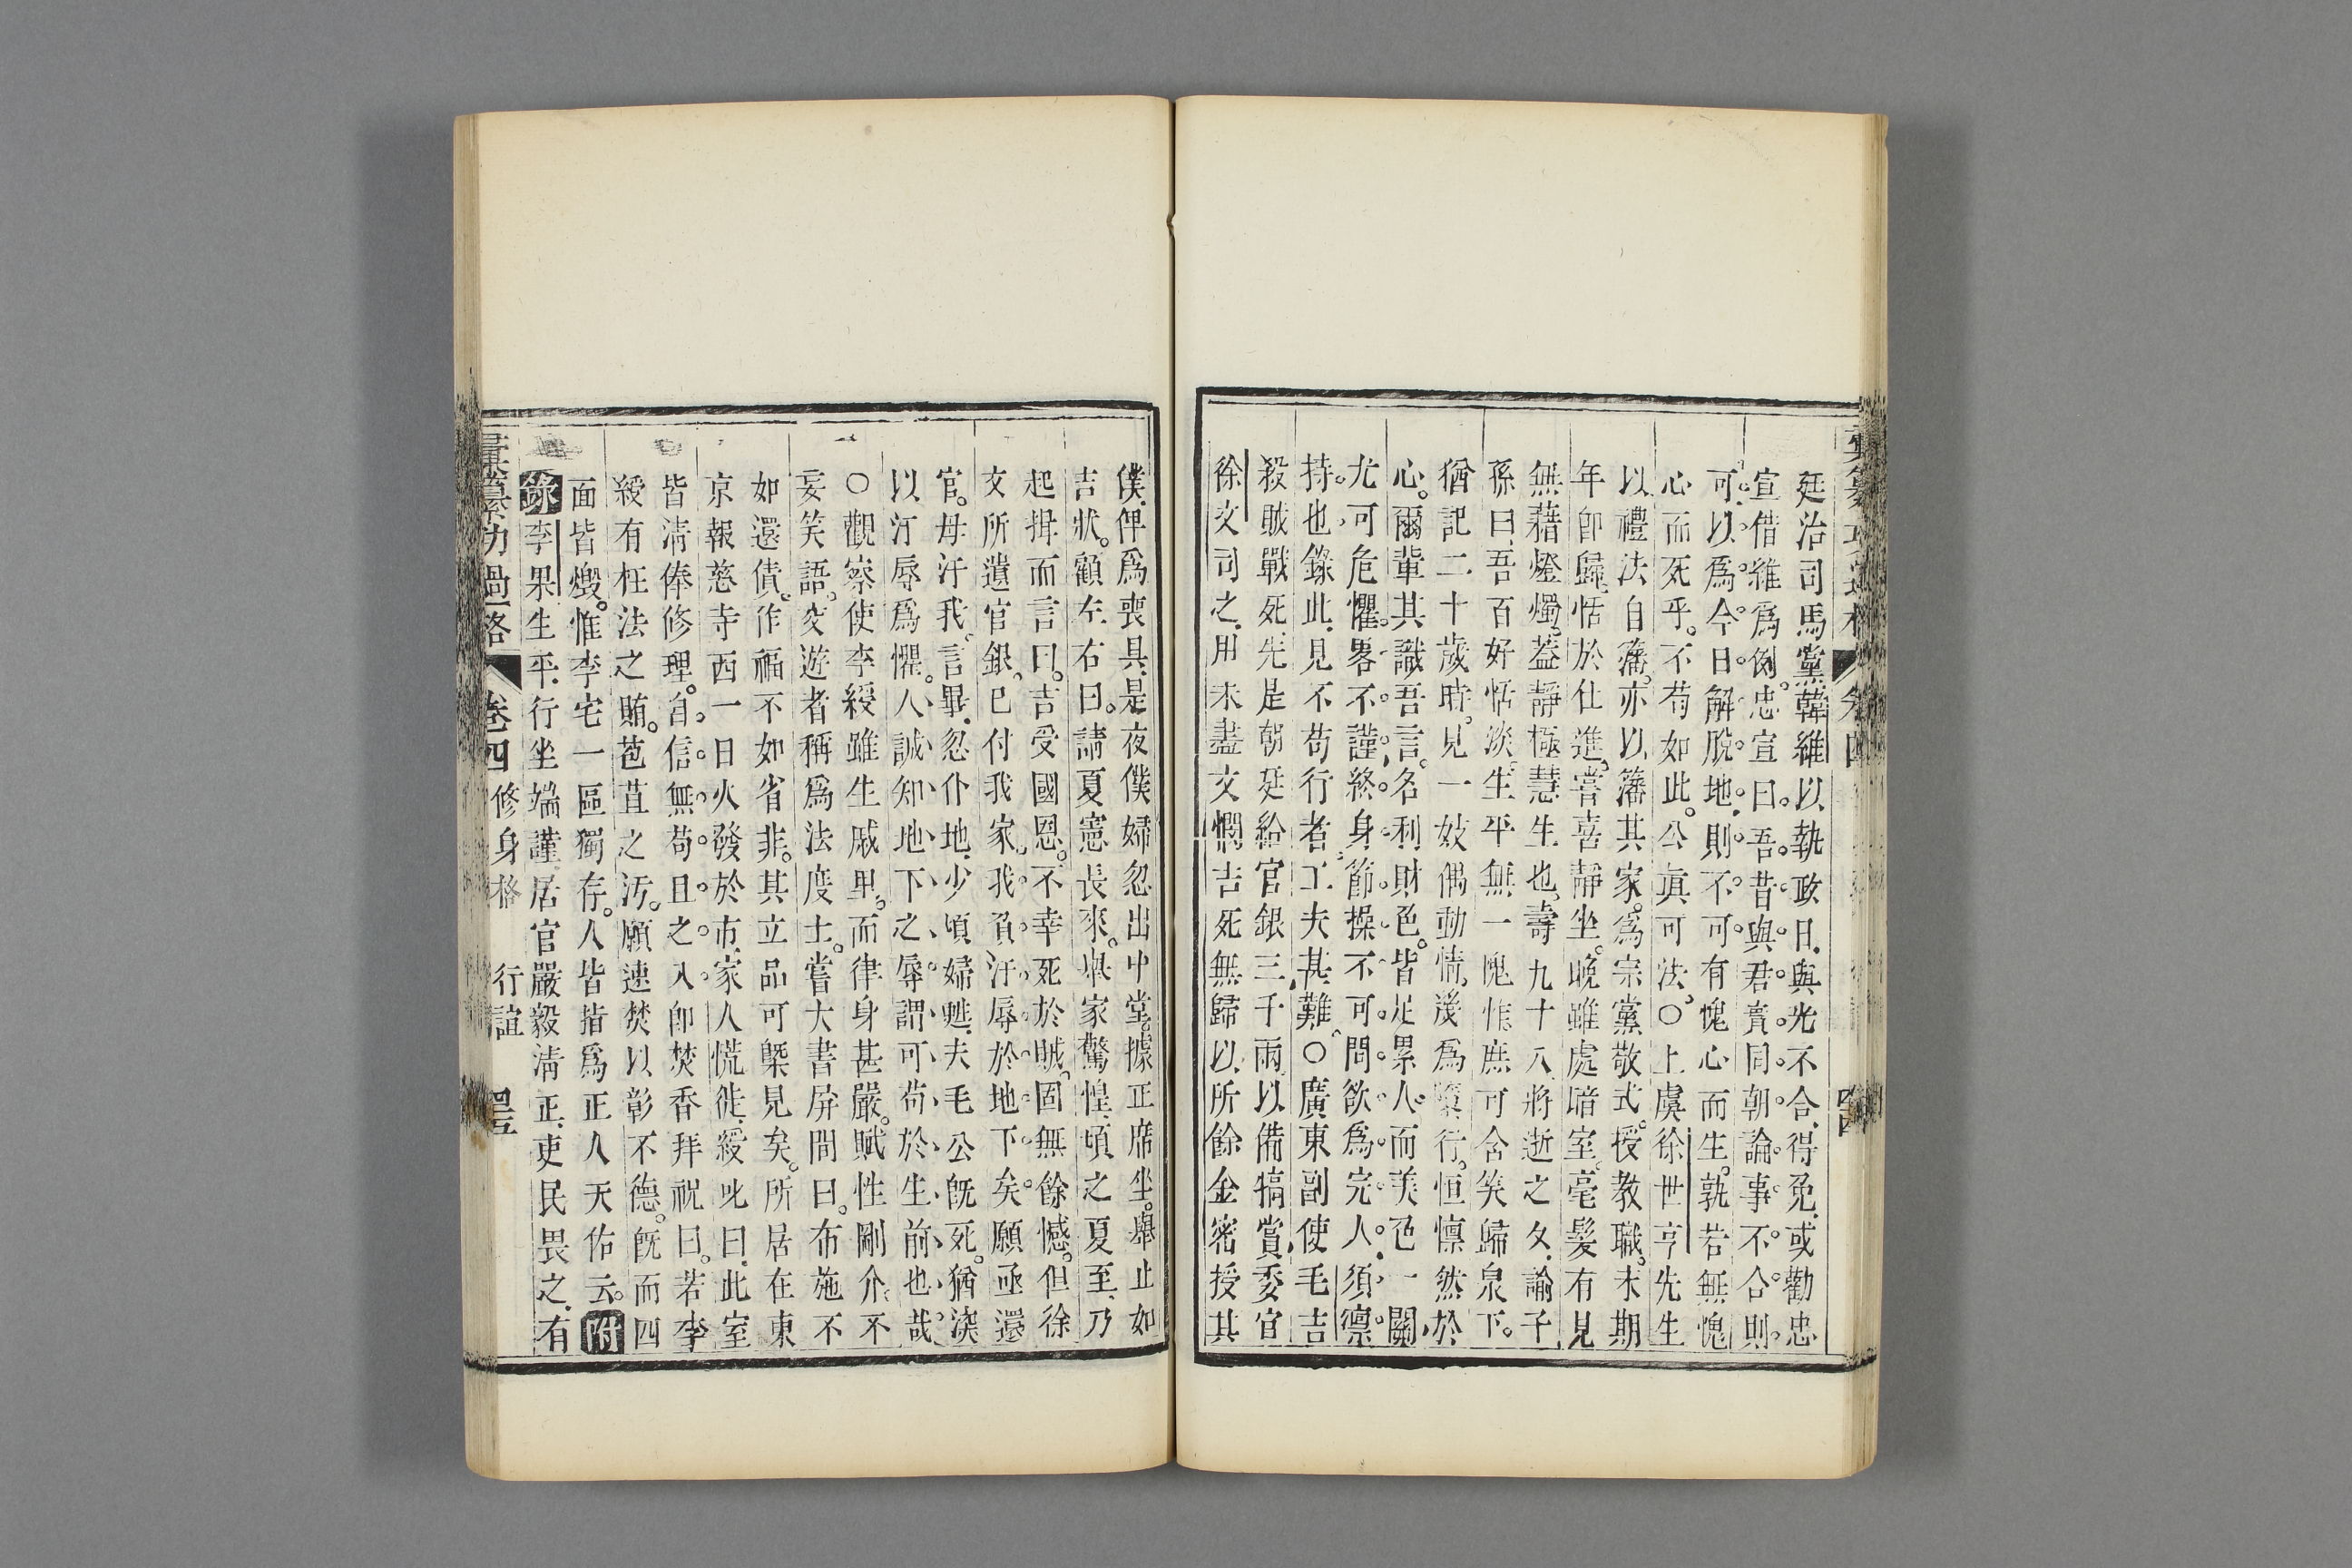 廷治司馬黨韓維以執政日與光不合得免或勸忠
宣借維爲例忠宣曰吾昔與君實同朝論事不合則
可以爲今日解脫地則不可有愧心而生孰若無愧
心而死乎不苟如此公眞可法〇上虞徐世亨先生
以禮法自藩亦以籓其家爲宗黨敬式授教職未期
年卽歸恬於仕進嘗喜靜坐晚雖處暗室毫髮有見
無藉燈燭葢靜極慧生也壽九十八將逝之夕諭子
孫曰吾百好恬淡生平無一愧怍庶可含笑歸泉下
猶記二十歲時見一妓偶動情幾爲墮行恒懍然於
心爾輩其識吾言名利財色皆足累人而美色一關
尤可危懼畧不謹終身節操不可問欲爲完人須懔
持也錄此見不苟行者工夫甚難〇廣東副使毛吉
殺賊戰死先是朝廷給官銀三千兩以備犒賞委官
徐文司之用未盡文憫吉死無歸以所餘金密授其
僕俾爲喪具是夜僕婦忽出中堂據正席坐舉止如
吉狀顧左右曰請夏憲長來舉家驚惶頃之夏至乃
起揖而言曰吉受國恩不幸死於賊固無餘憾但徐
文所遺官銀已付我家我負汙辱於地下矣願亟還
官毋汙我言畢忽仆地少頃婦甦夫毛公旣死猶淡
以汙辱爲懼人誠知地下之辱謂可苟於生前也哉
〇觀察使李綬雖生戚里而律身甚嚴賦性剛介不
妄笑語交遊者稱爲法度士嘗大書屏間曰布施不
如還債作福不如省非其立品可槩見矣所居在東
京報慈寺西一日火發於市家人慌徙綬叱曰此室
皆淸俸修理自信無苟且之入卽焚香拜祝曰若李
綬有枉法之賄苞苴之汚願速焚以彰不德旣而四
面皆燬惟李宅一區獨存人皆指爲正人天佑云附
錄李果生平行坐端謹居官嚴毅淸正吏民畏之有
彙纂功過格 卷四 修身格 行誼 四五